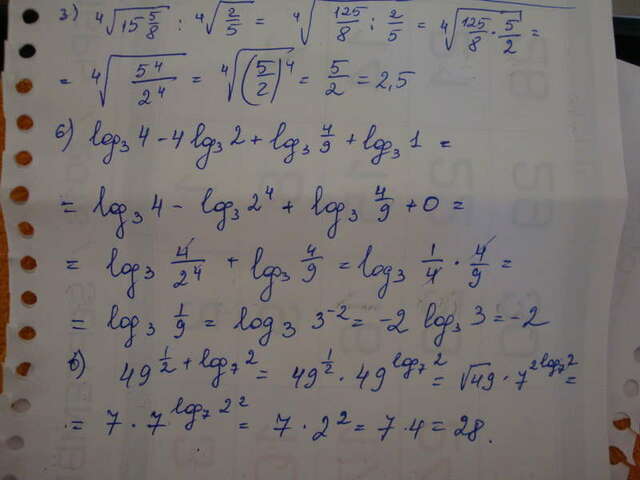 3) ⁴√(15 5/8) : ⁴√(2/5) = ⁴√(125/8 : 2/5) = ⁴√(125/8 · 5/2) =
= ⁴√(5⁴/2⁴) = ⁴√((5/2)⁴) = 5/2 = 2,5
б) log₃ 4 - 4 log₃ 2 + log₃ 4/9 + log₃ 1 =
= log₃ 4 - log₃ 2⁴ + log₃ 4/9 + 0 =
= log₃ 4/2⁴ + log₃ 4/9 = log₃ 1/4 · 4/9 =
= log₃ 1/9 = log₃ 3⁻² = -2 log₃ 3 = -2
в) 49^(1/2 + log₇ 2) = 49^(1/2) · 49^(log₇ 2) = √49 · 7^(2 log₇ 2) =
= 7 · 7^(log₇ 2²) = 7 · 2² = 7 · 4 = 28.